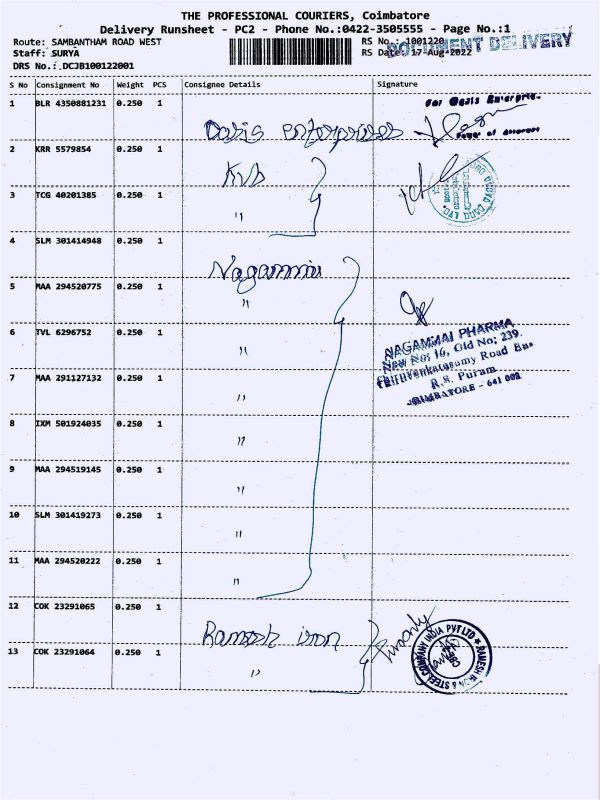 THE PROFESSIONAL COURIERS, Coimbatore
Delivery Runsheet - PC2 - Phone No.:0422-3505555 - Page No.:1
Route: SAMBANTHAM ROAD WEST RS No.: 1001220
DOCUMENT DELIVERY
Staff: SURYA RS Date: 17-Aug-2022
DRS No.:.DCJB100122001
S No Consignment No Weight PCS Consignee Details Signature
1 BLR 4350881231 0.250 1
Oasis enterprises
For Oasis Enterprises
Power of Attorney
2 KRR 5579854 0.250 1
KVB
3 TCG 40201385 0.250 1
"
4 SLM 301414948 0.250 1
Nagammai
5 MAA 294520775 0.250 1
"
6 TVL 6296752 0.250 1
"
NAGAMMAI PHARMA
New No: 16, Old No; 239.
Thiruvenkatasamy Road Eas
R.S. Puram
COIMBATORE - 641 002
7 MAA 291127132 0.250 1
"
8 IXM 501924035 0.250 1
"
9 MAA 294519145 0.250 1
"
10 SLM 301419273 0.250 1
"
11 MAA 294520222 0.250 1
"
12 COK 23291065 0.250 1
Ramesh iron
13 COK 23291064 0.250 1
"
RAMESH IRON & STEEL COMPANY INDIA PVT LTD
CBE